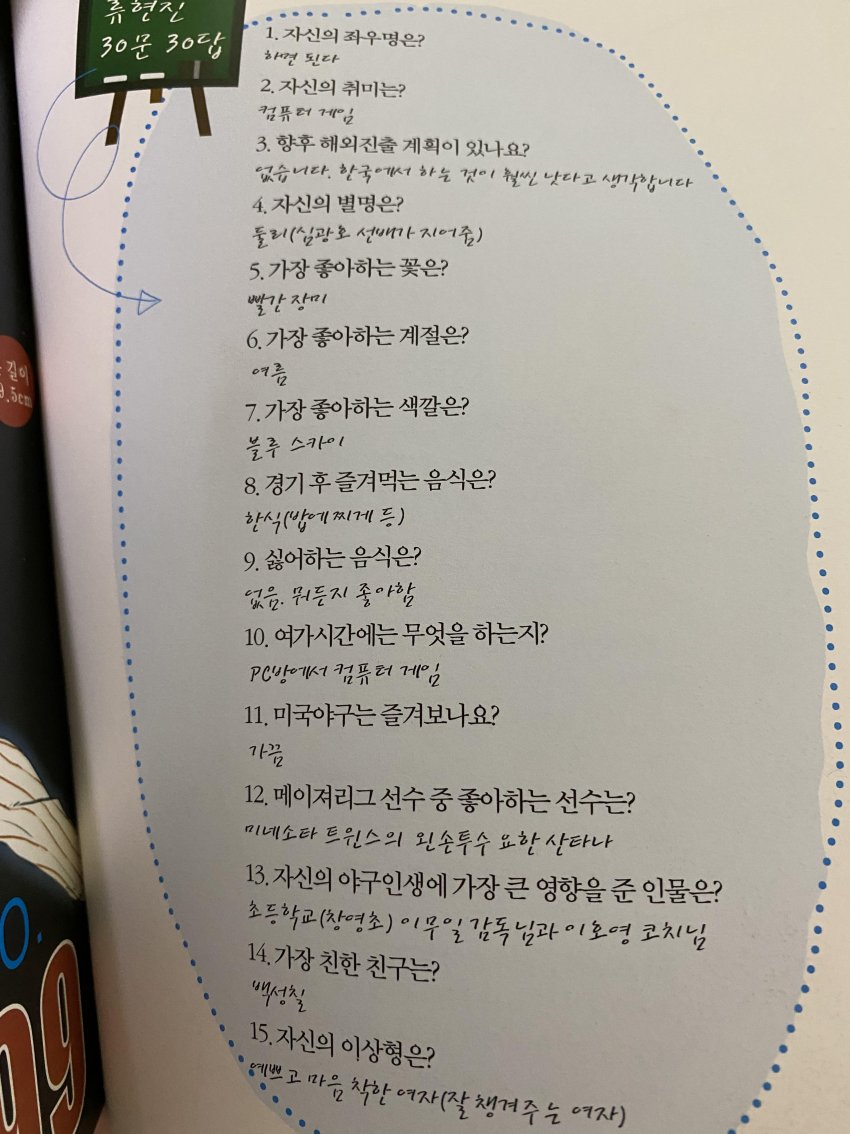 류현진
30문 30답
1. 자신의 좌우명은?
하면 된다
2. 자신의 취미는?
컴퓨터 게임
3. 향후 해외진출 계획이 있나요?
없습니다. 한국에서 하는 것이 훨씬 낫다고 생각합니다
4. 자신의 별명은?
둘리(심광호 선배가 지어줌)
5. 가장 좋아하는 꽃은?
빨간 장미
6. 가장 좋아하는 계절은?
여름
7. 가장 좋아하는 색깔은?
블루 스카이
8. 경기 후 즐겨먹는 음식은?
한식(밥에 찌게 등)
9. 싫어하는 음식은?
없음. 뭐든지 좋아함
10. 여가시간에는 무엇을 하는지?
PC방에서 컴퓨터 게임
11. 미국야구는 즐겨보나요?
가끔
12. 메이져리그 선수 중 좋아하는 선수는?
미네소타 트윈스의 왼손투수 요한 산타나
13. 자신의 야구인생에 가장 큰 영향을 준 인물은?
초등학교(창영초) 이무일 감독님과 이호영 코치님
14. 가장 친한 친구는?
백성칠
15. 자신의 이상형은?
예쁘고 마음 착한 여자(잘 챙겨 주는 여자)
길이
9.5cm
99